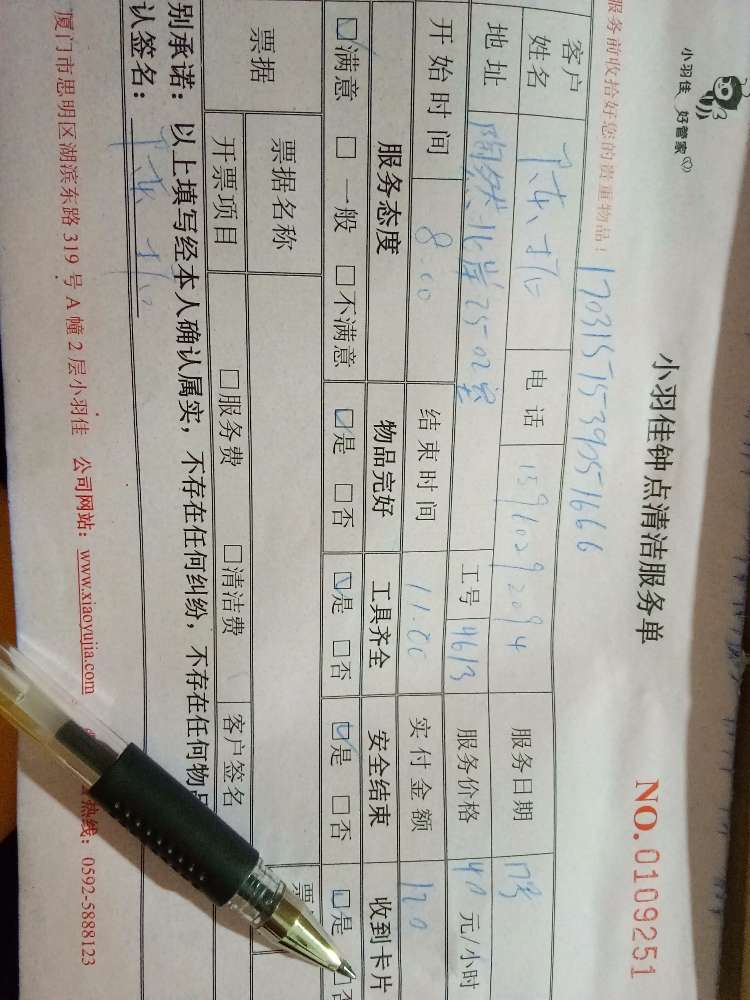 小羽佳 好管家
小羽佳钟点清洁服务单
NO.0109251
服务前收拾好您的贵重物品!
客户姓名 电话 15910292094 服务日期 17号
地址 陶然北岸25-02室 工号 4613 服务价格 40 元/小时
开始时间 8:00 结束时间 11:00 实付金额 120
服务态度 物品完好 工具齐全 安全结束 收到卡片
☑满意 □一般 □不满意 ☑是 □否 ☑是 □否 ☑是 □否 ☑是 □否
票据 票据名称
开票项目 □服务费 □清洁费 客户签名
别承诺:以上填写经本人确认属实,不存在任何纠纷,不存在任何物品
认签名:
厦门市思明区湖滨东路319号A幢2层小羽佳 公司网站:www.xiaoyujia.com 热线:0592-5888123